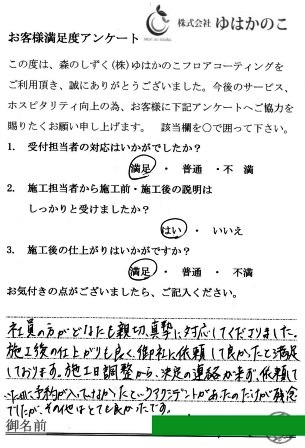 株式会社 ゆはかのこ
お客様満足度アンケート
この度は、森のしずく(株)ゆはかのこフロアコーティングを
ご利用頂き、誠にありがとうございました。今後のサービス、
ホスピタリティ向上の為、お客様に下記アンケートへご協力を
賜りたくお願い申し上げます。 該当欄を○で囲って下さい。
1. 受付担当者の対応はいかがでしたか?
満足 ・ 普通 ・ 不 満
2. 施工担当者から施工前・施工後の説明は
しっかりと受けましたか?
はい ・ いいえ
3. 施工後の仕上がりはいかがですか?
満足 ・ 普通 ・ 不満
お気付きの点がございましたら、ご記入ください。
社員の方がどなたも親切、真摯に対応してくださりました。
施工後の仕上がりも良く、御社に依頼して良かったと満足
しております。施工日調整から、決定の連絡が来ず、依頼して
いたのに予約が入ってなかったというアクシデントがあったのだけが残念
でしたが、その他はとても良かったです。
御名前